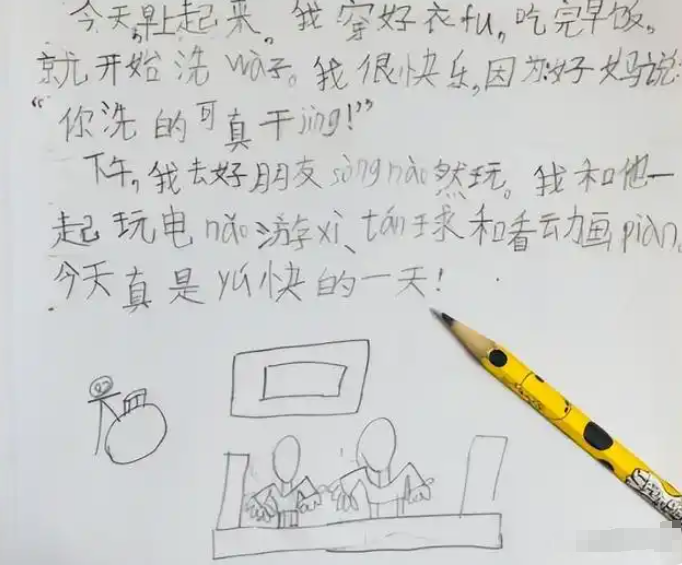 今天早上起来，我穿好衣fu，吃完早饭，
就开始洗wà子。我很快乐，因为好妈说：
“你洗的可真干jing！”
下午，我去好朋友sòng nào然玩。我和他一
起玩电nǎo游xì、tán球和看动画piàn。
今天真是yú快的一天！